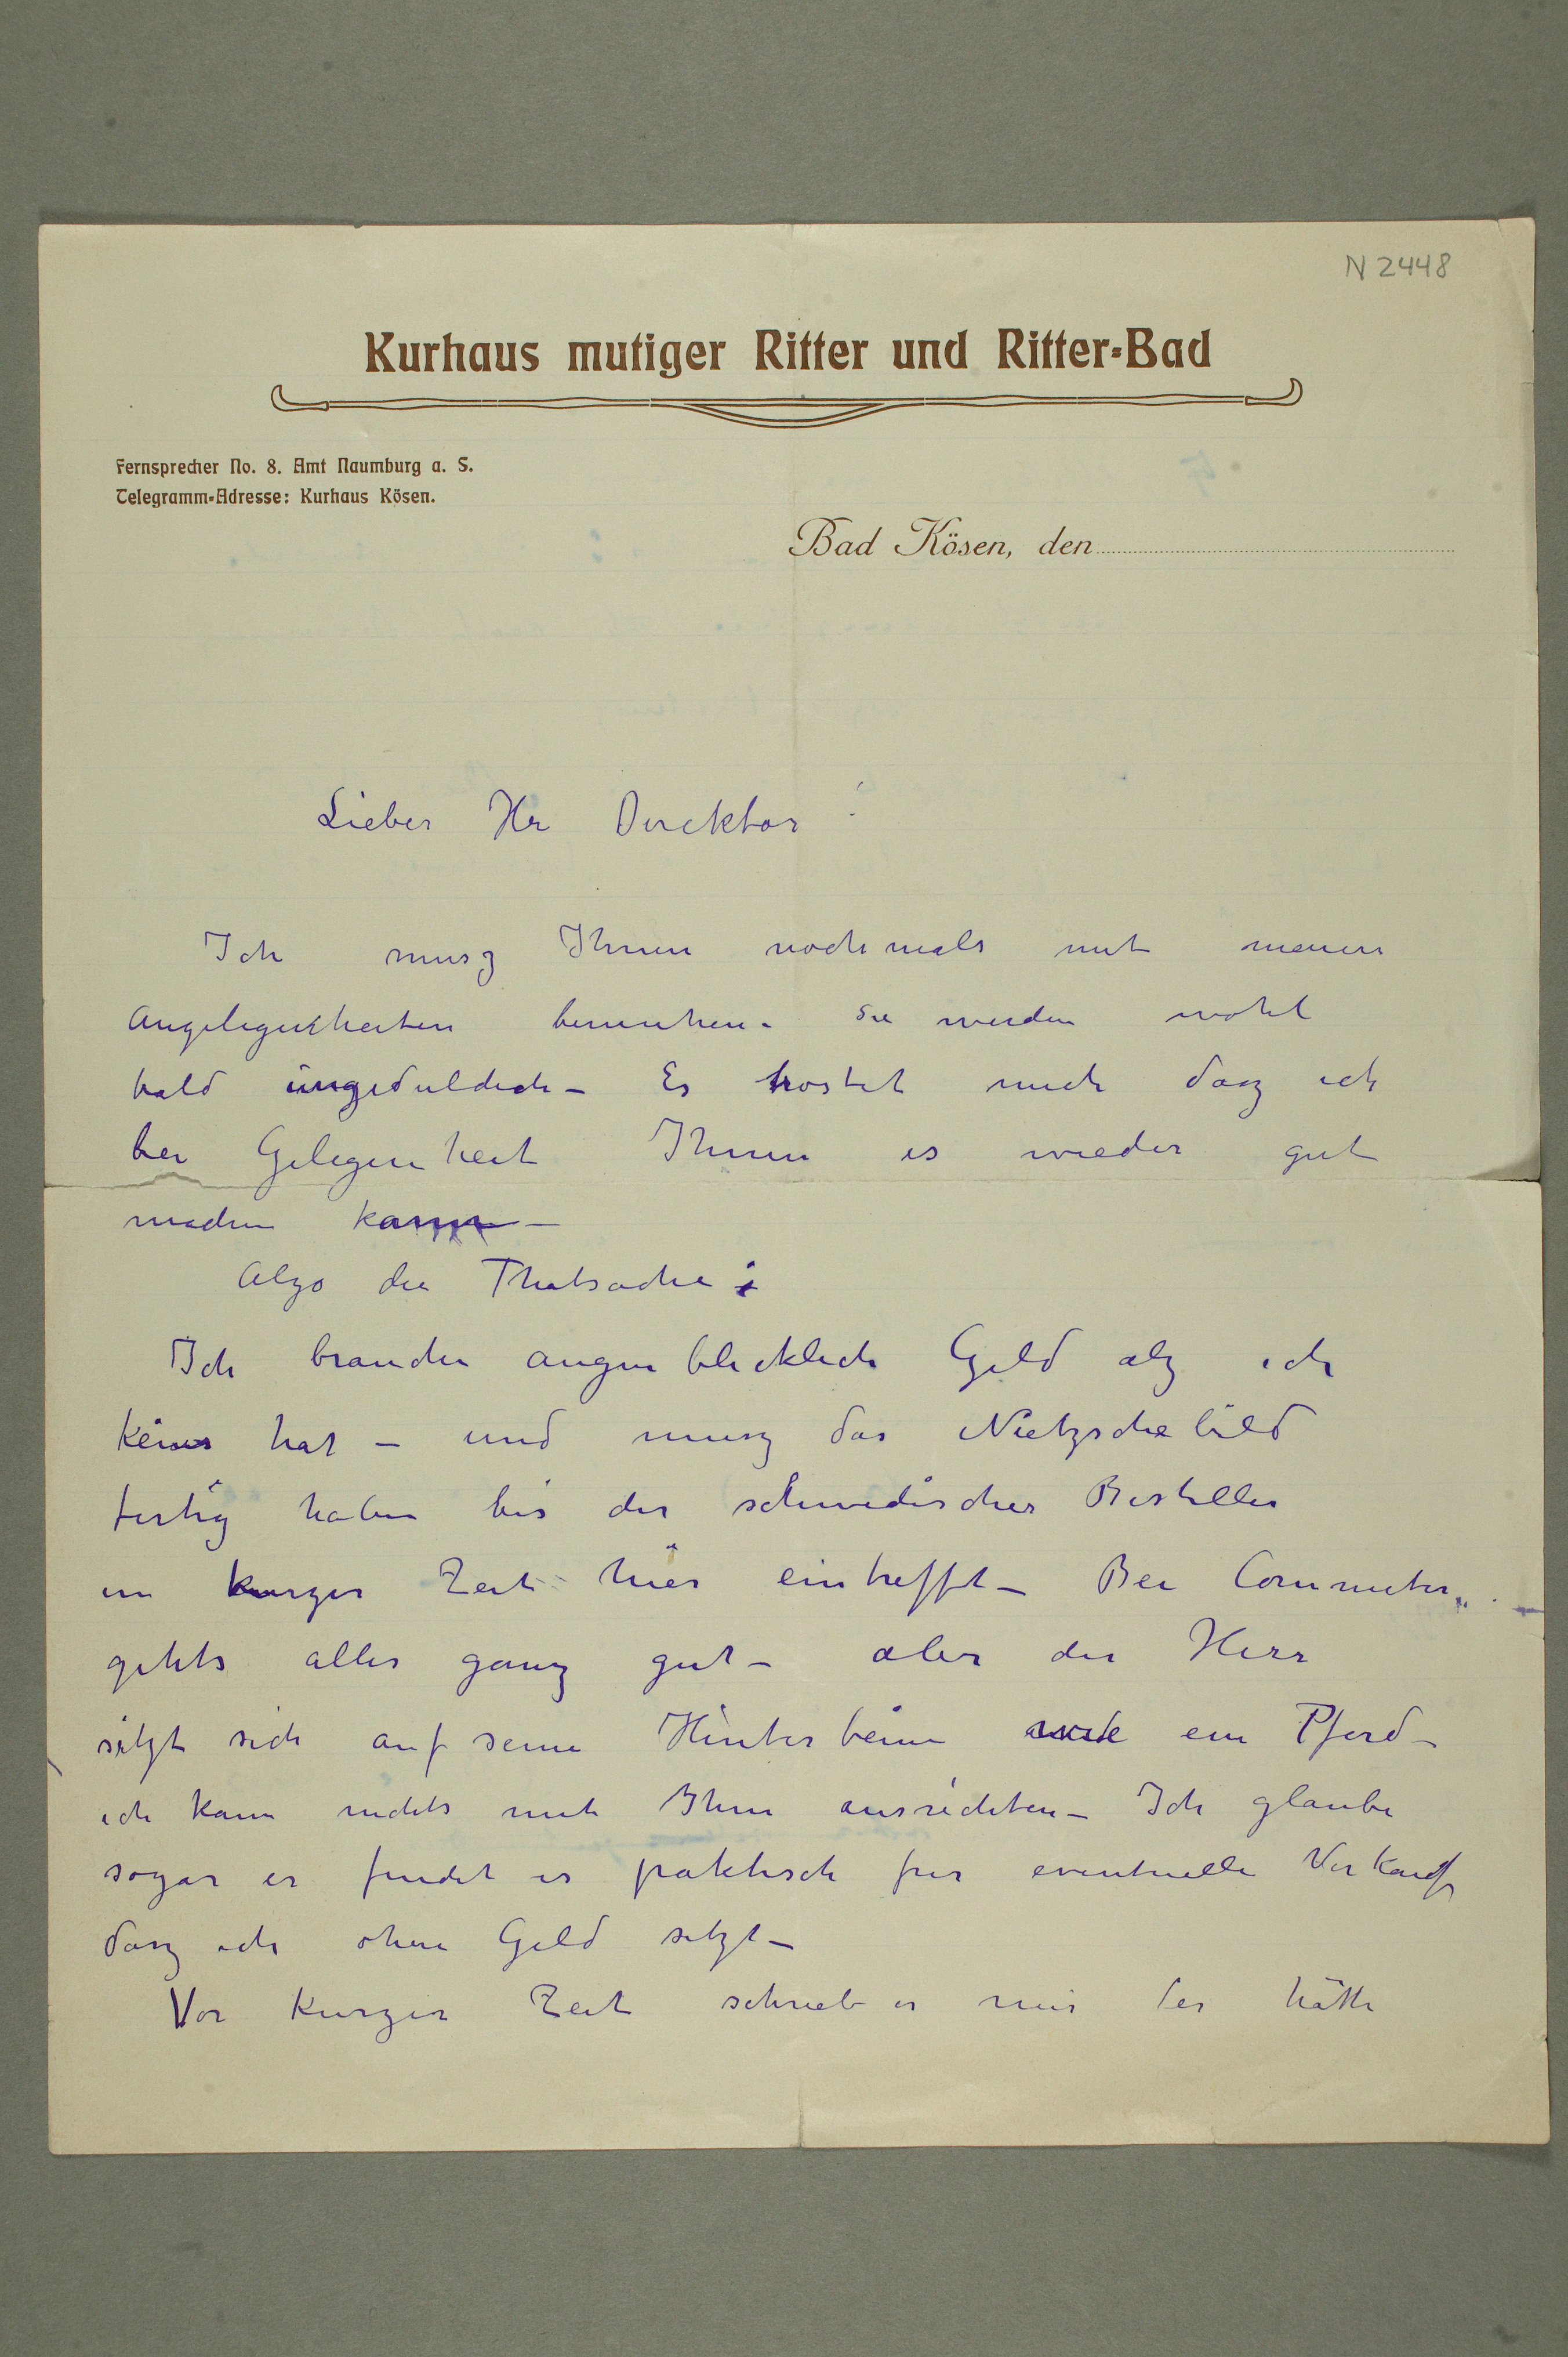 N 2448
Kurhaus mutiger Ritter und Ritter-Bad
Fernsprecher No. 8. Amt Naumburg a. S.
Telegramm-Adresse: Kurhaus Kösen.
Bad Kösen, den
Lieber Hr Direktor!
Ich musz Ihnen nochmals mit meinen
Angelegenheiten bemuhen. Sie werden wohl
bald ungeduldich – Es trostet mich dasz ich
bei Gelegenheit Ihnen es wieder gut
machen kann –
Alzo die Thatsache:
Ich brauche augenblicklich Geld alz ich
keines hat – und musz das Nietzschebild
fertig haben bis der schwedischer Besteller
in kurzer Zeit hier eintrefft – Bei Commeter
gehts alles ganz gut – aber der Herr
sitzt sich auf seine Hinterbeine wie ein Pferd –
ich kann nichts mit Ihm ausrichten – Ich glaube
sogar er findet es praktisch fur eventuelle Verkauf
dasz ich ohne Geld sitzt –
Vor kurzer Zeit schrieb er mir hätte